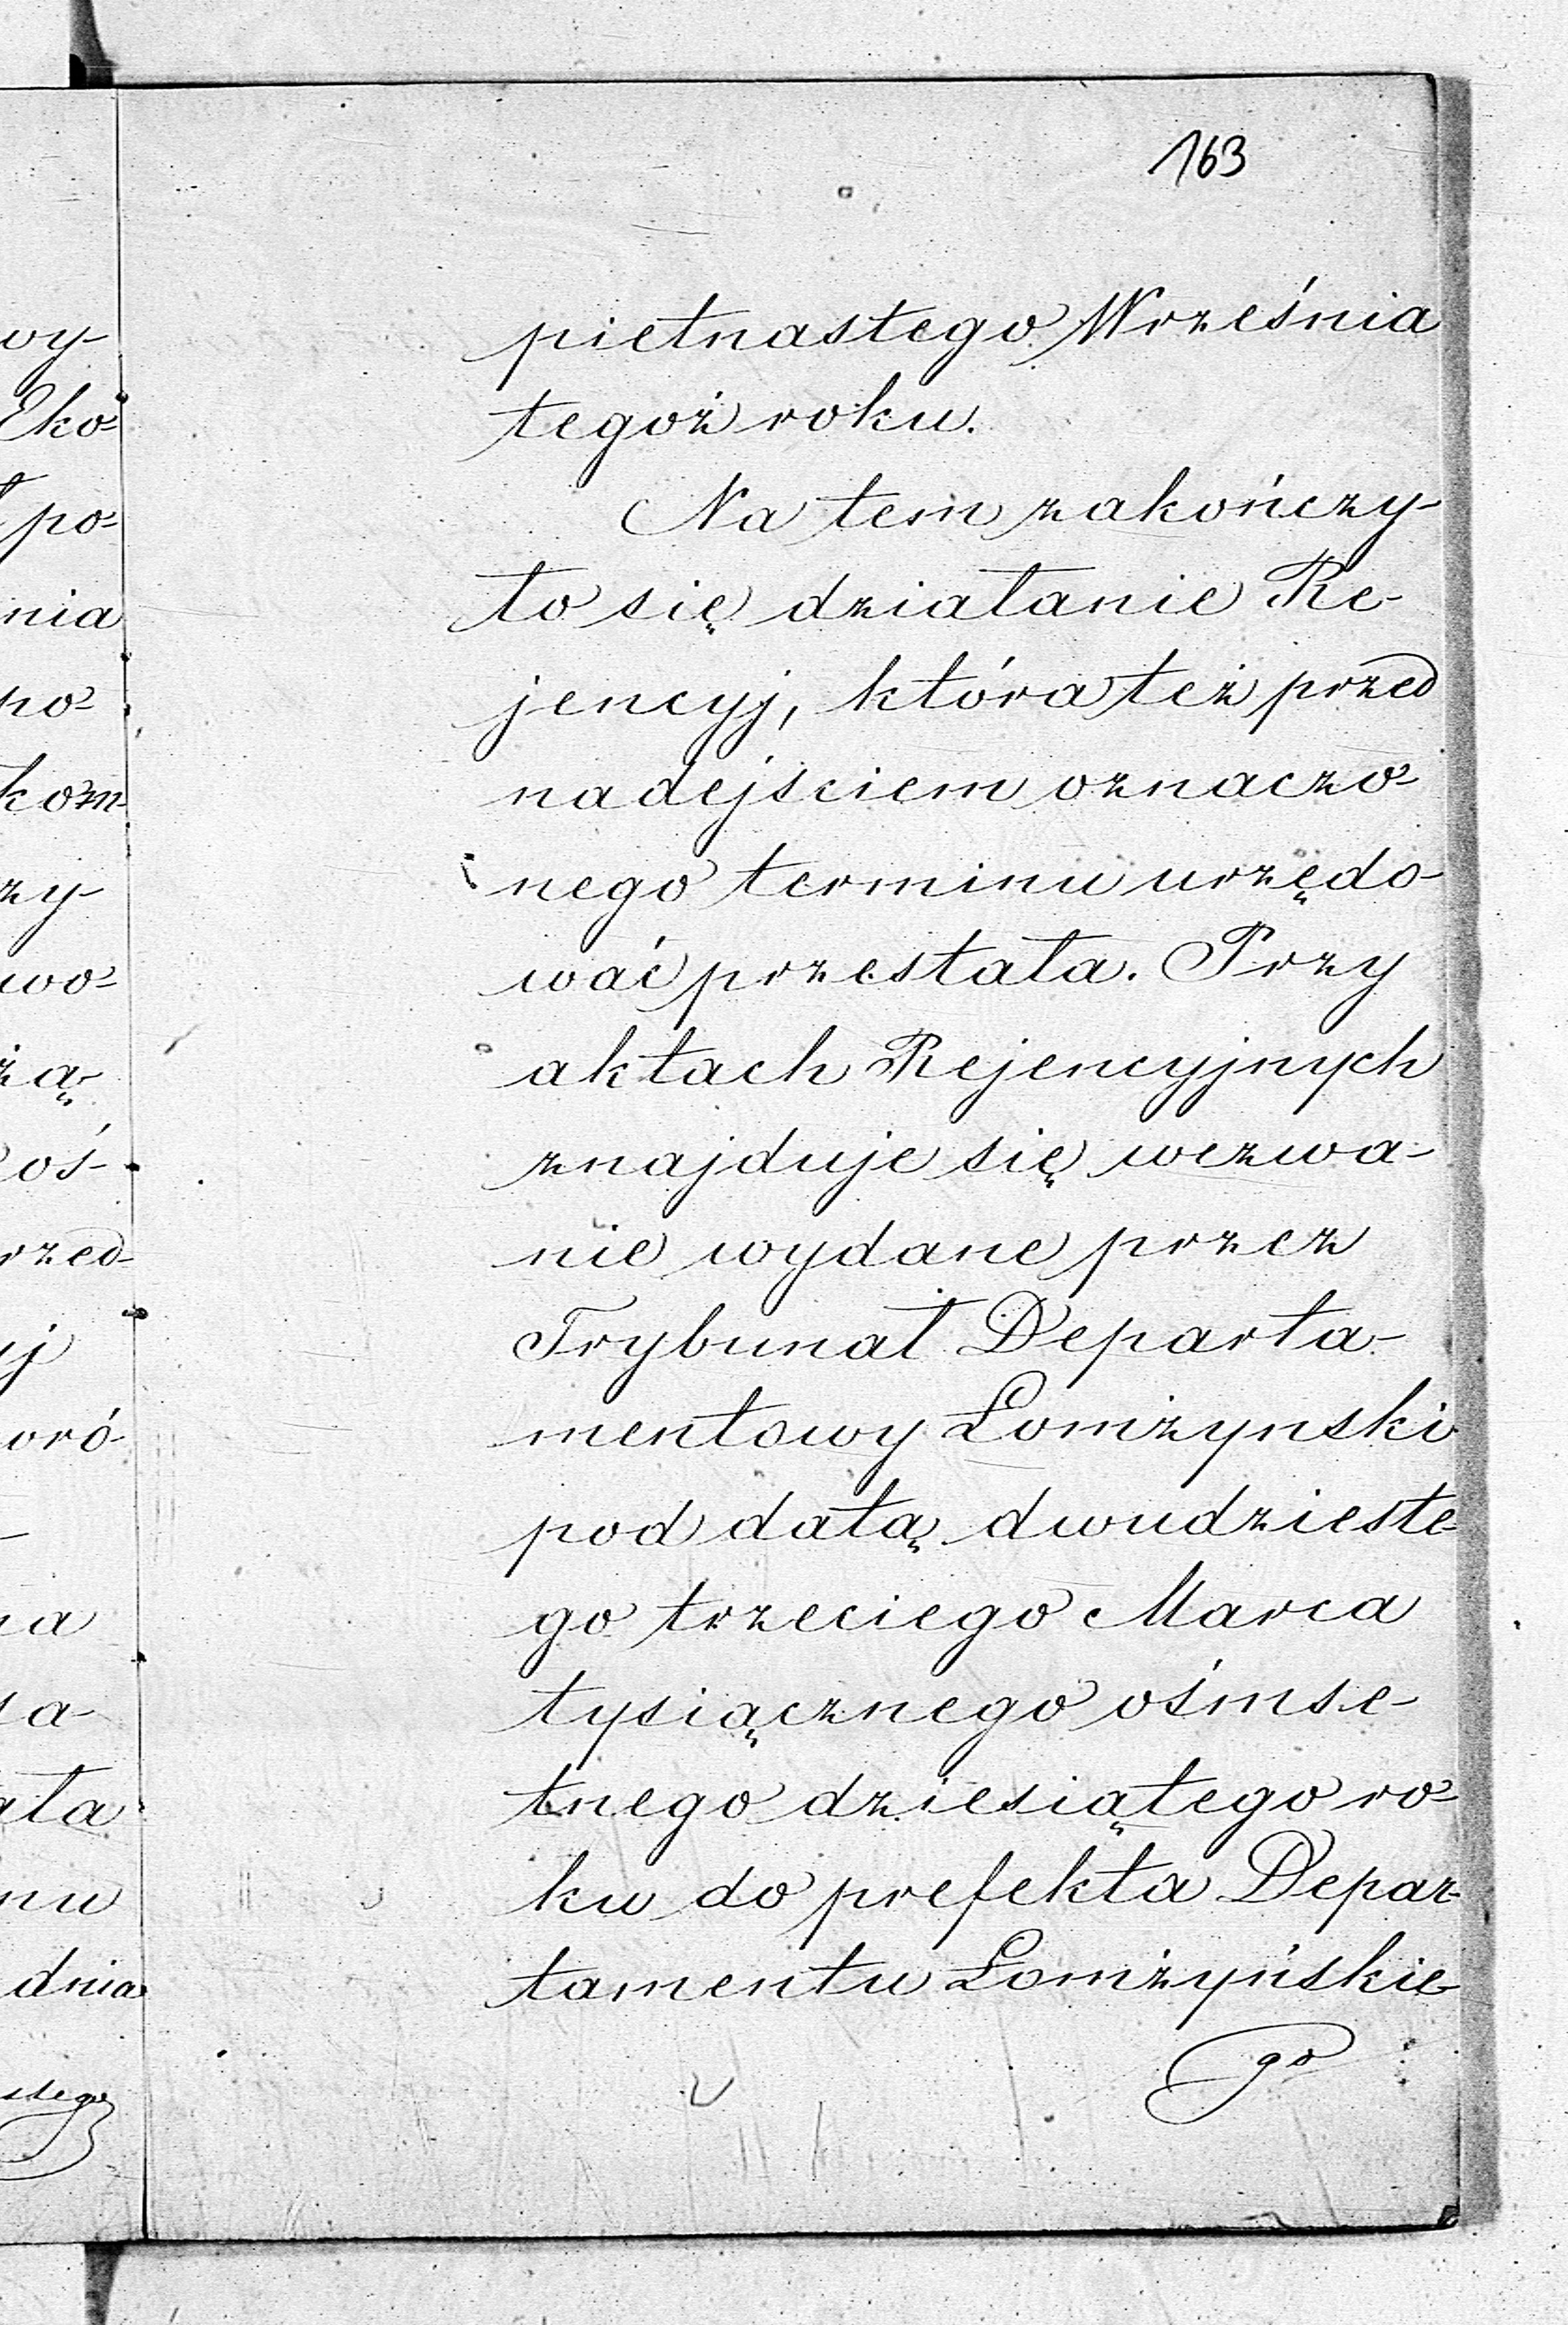 163
pietnastego Września
tegoż roku.
Na tem zakończy-
ło się działanie Re-
jencyj, która też przed
nadejściem oznaczo-
nego terminu urzędo-
wać przestała. Przy
aktach Rejencyjnych
znajduje się wezwa-
nie wydane przez
Trybunał Departa-
mentowy Łomżynski
pod datą dwudzieste-
go trzeciego Marca
tysiącznego ośmse-
tnego dziesiątego ro-
ku do prefekta Depar-
tamentu Łomżyńskie-
go